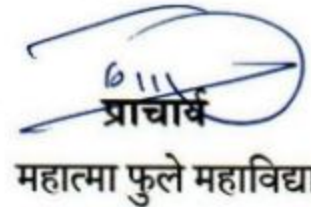 प्राचार्य
महात्मा फुले महाविद्या